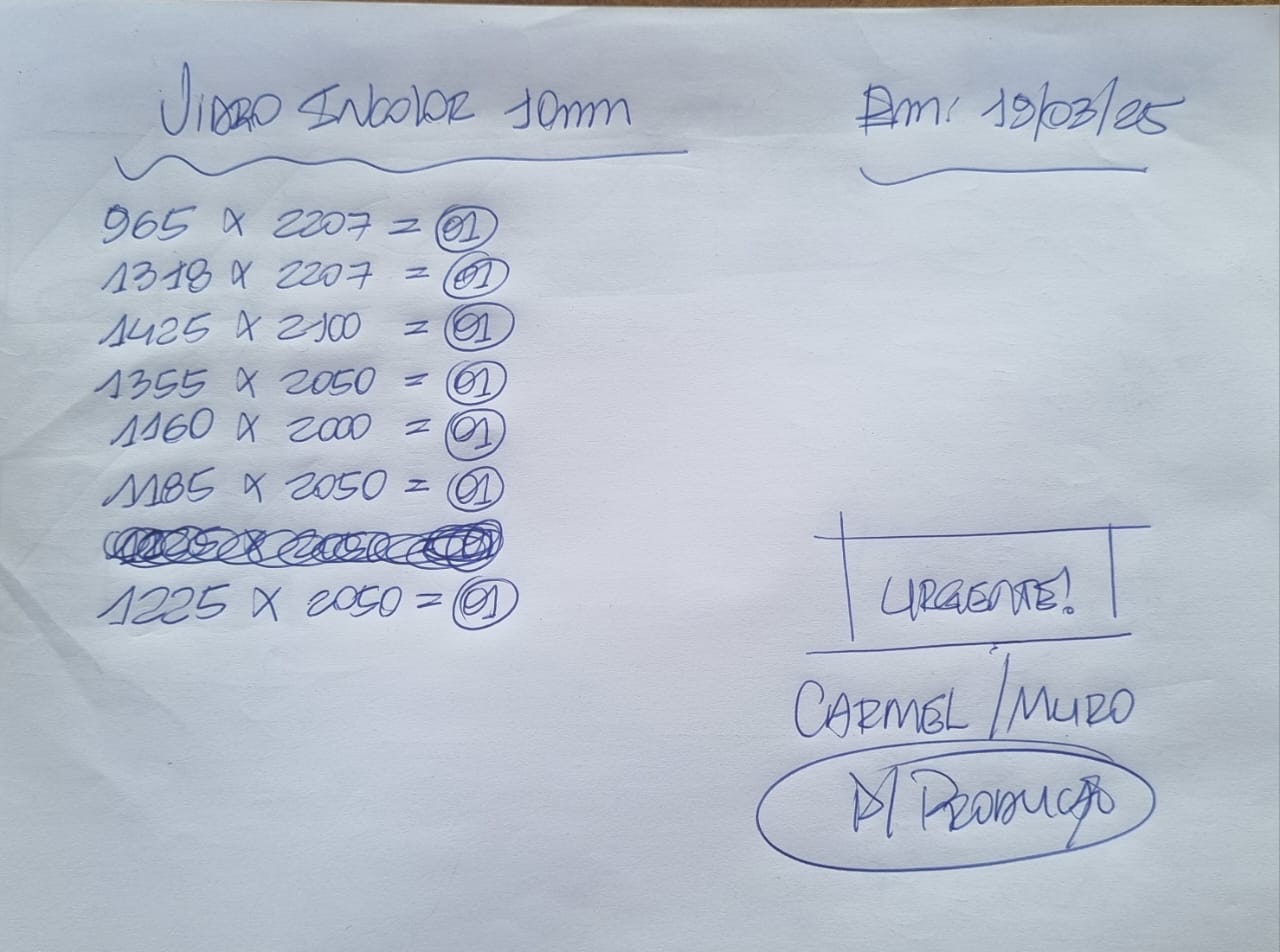 VIDRO INCOLOR 10mm
Em: 19/03/25
965 x 2207 = 01
1318 x 2207 = 01
1425 x 2100 = 01
1355 x 2050 = 01
1160 x 2000 = 01
1185 x 2050 = 01
1225 x 2050 = 01
URGENTE!
CARMEL / MURO
P/ PRODUÇÃO